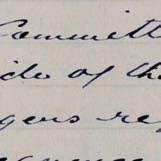 Committ
ide of the
gers re